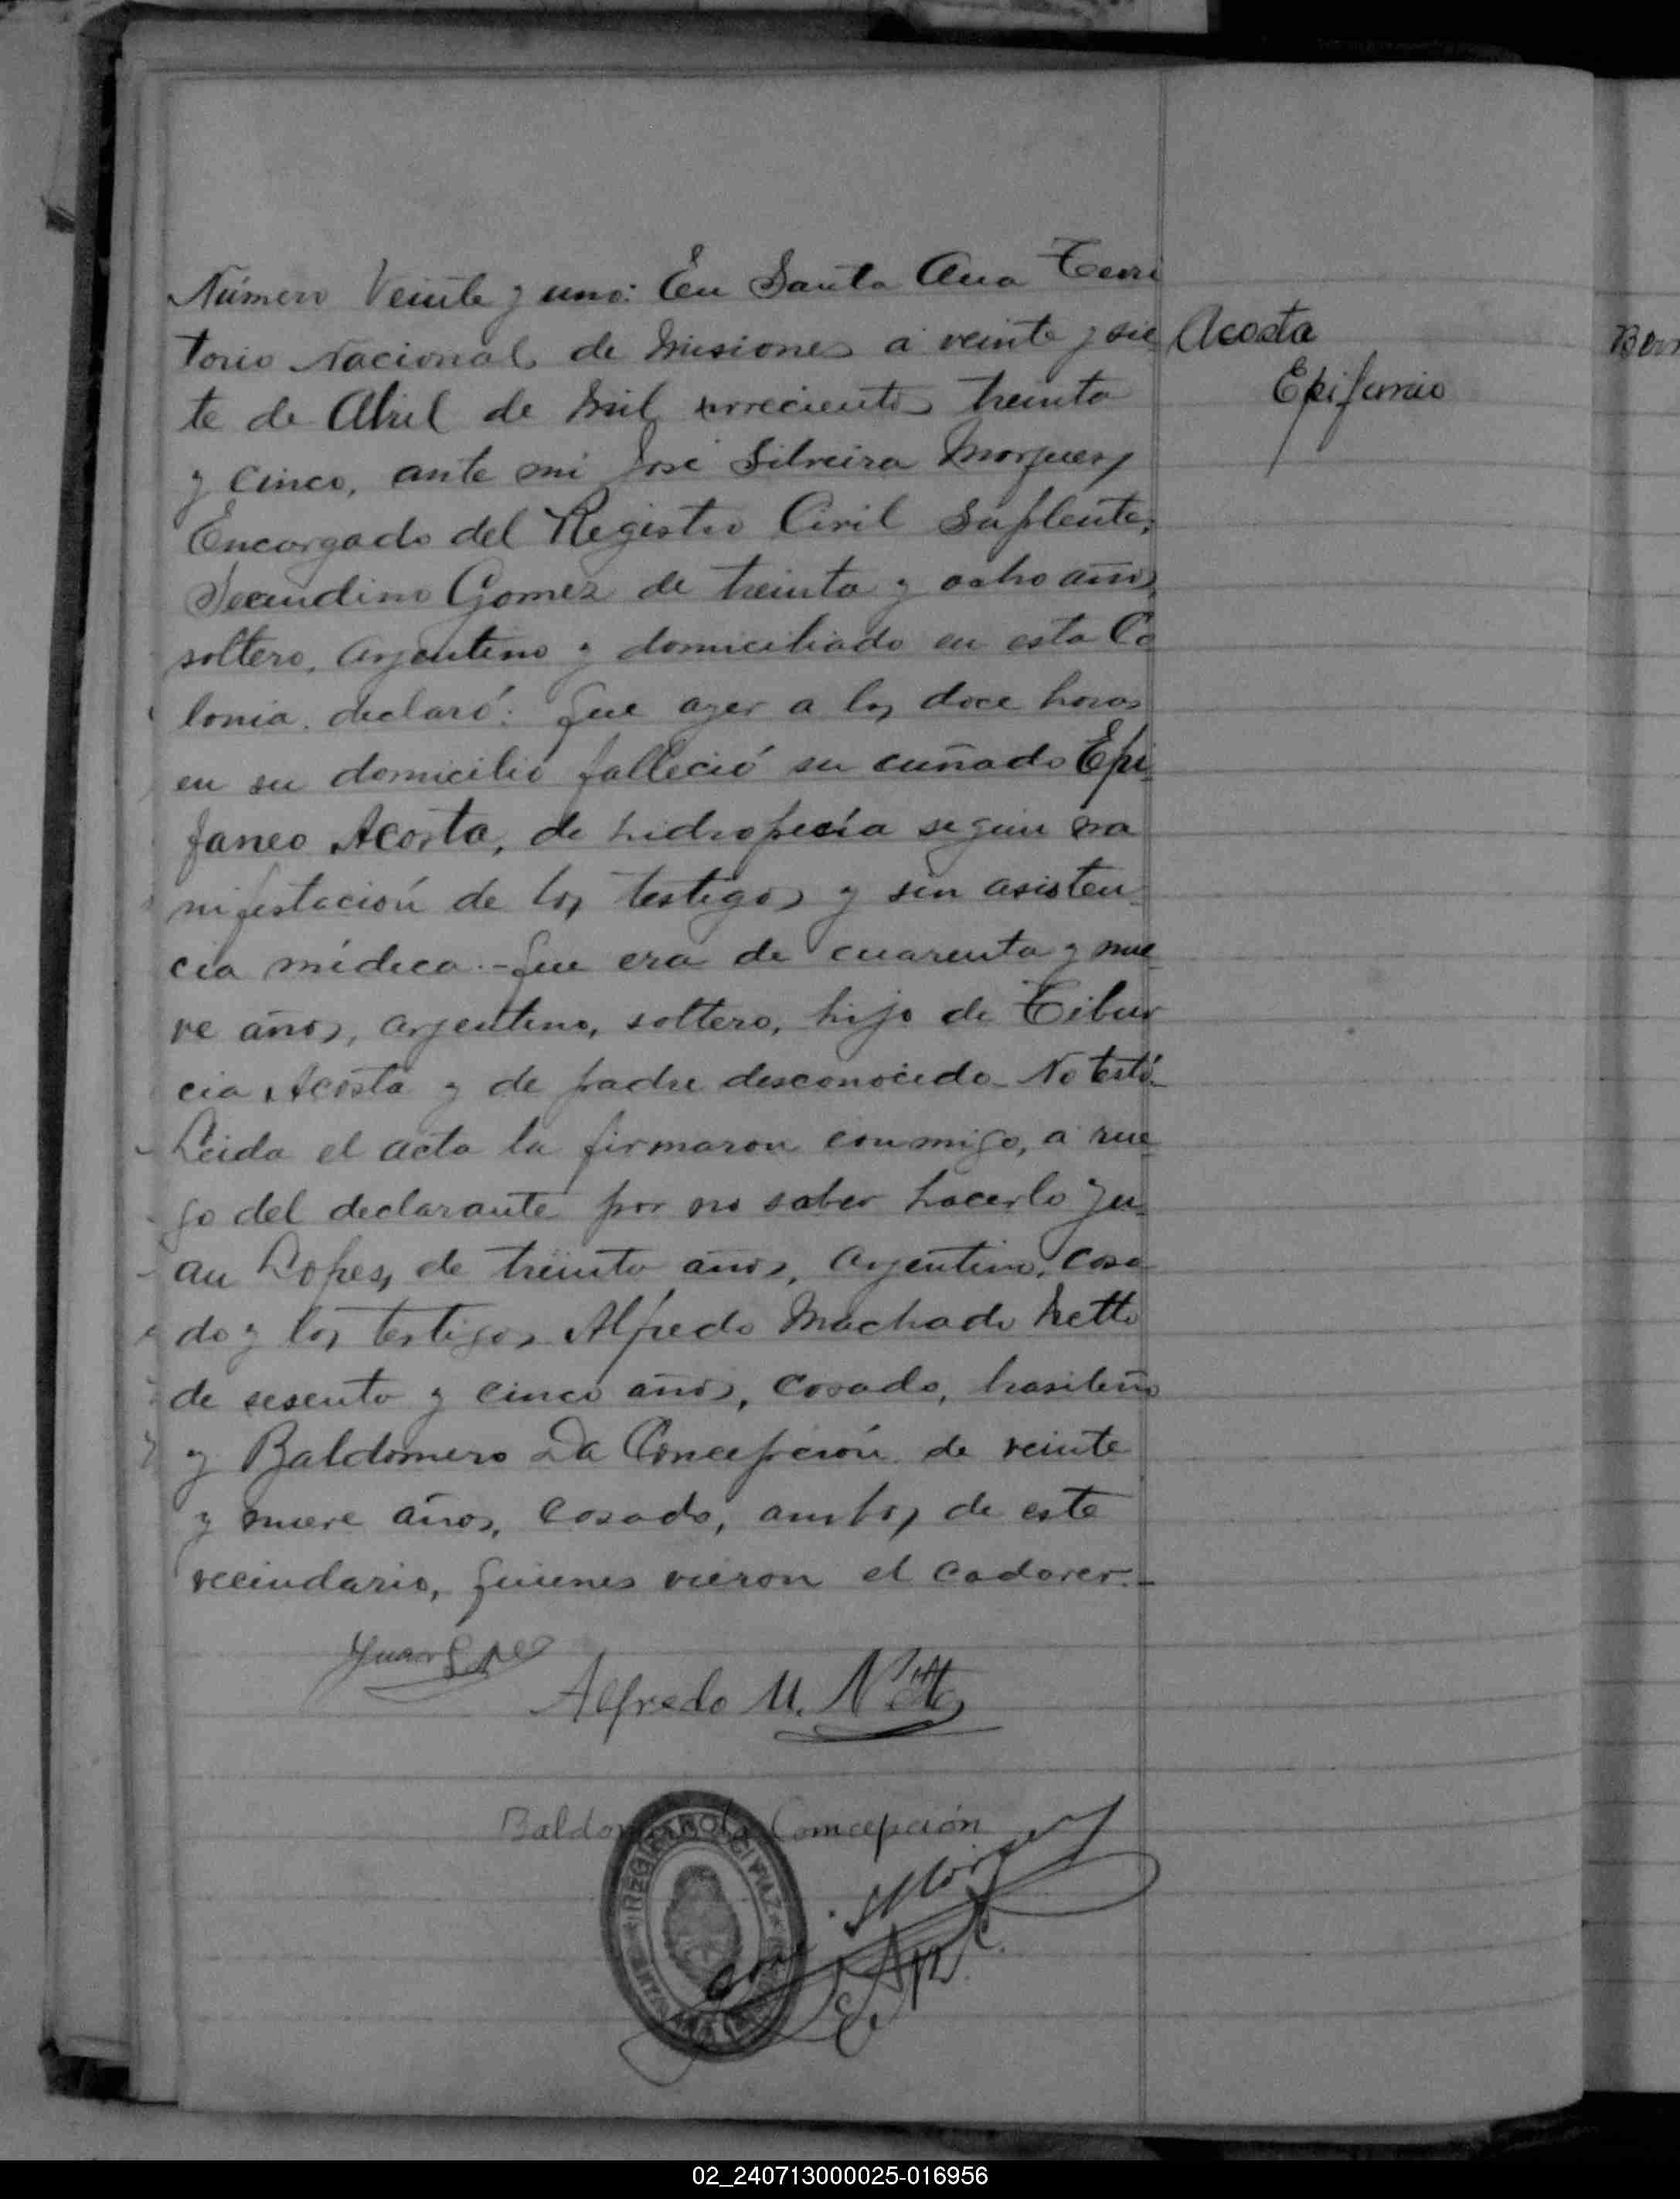 Número Veinte y uno: En Santa Ana Terri
torio Nacional de Misiones a veinte y sie
te de Abril de mil novecientos treinta
y cinco, ante mi José Silveira Marques,
Encargado del Registro Civil Suplente,
Secundino Gomez de treinta y ocho años,
soltero, argentino y domiciliado en esta Co
lonia, declaró: Que ayer a las doce horas
en su domicilio falleció su cuñado Epi
faneo Acosta, de hidropecía según ma
nifestación de los testigos y sin asisten
cia médica.- Que era de cuarenta y nue
ve años, argentino, soltero, hijo de Tibur
cia Acosta y de padre desconocido. No testó.
Leida el acta la firmaron conmigo, a rue
go del declarante por no saber hacerlo Ju
an Lopes, de treinta años, argentino, casa
do y los testigos Alfredo Machado Netto
de sesenta y cinco años, casado, brasileño
y Baldomero Da Concepción de veinte
y nueve años, casado, ambos de este
vecindario, quienes vieron el cadaver.-
Acosta
Epifanio
Juan
Alfredo M. Netto
Concepción
02_240713000025-016956